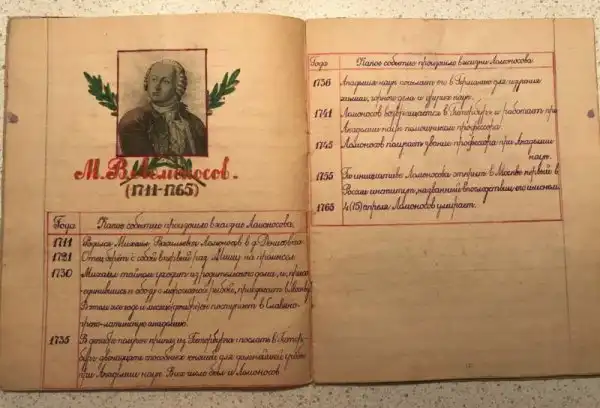 М.В. Ломоносов.
(1711-1765)
Года Какое событие произошло в жизни Ломоносова.
1711 Родился Михаил Васильевич Ломоносов в д. Денисовка
1721 Отец берёт с собой впервый раз Мишу на промысел.
1730 Михаил тайком уходит из родительского дома, и, присо-
единившись к обозу с мороженой рыбой, приходит в Москву
В этом же году и месяце (декабре) он поступает в Славяно-
греко-латинскую академию.
1735 В декабре получен приказ из Петербурга: послать в Петер-
бург двенадцать способных юношей для дальнейшей учёбы
при Академии наук. В их число был и Ломоносов
Года Какое событие произошло в жизни Ломоносова
1736 Академия наук посылает его в Германию для изучения
химии, горного дела и других наук.
1741 Ломоносов возвращается в Петербург и работает при
Академии наук помощником профессора.
1745 Ломоносов получает звание профессора при Академии
наук.
1755 По инициативе Ломоносова открыт в Москве первый в
России институт, названный впоследствии его именем.
1765 4(15) апреля Ломоносов умирает.